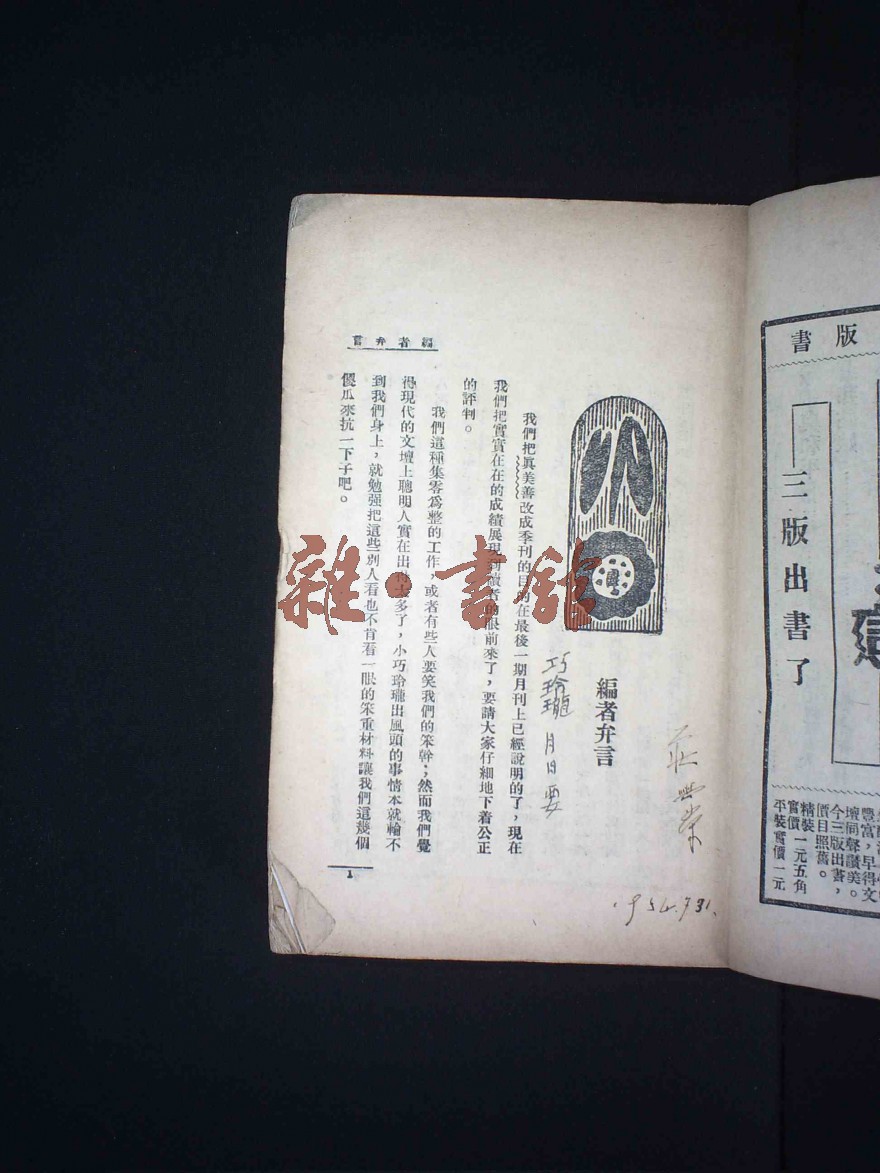 書版
三版出書了
豐富，早得文
壇同聲讚美。
今三版出書，
價目照舊。
精裝
實價一元五角
平裝實價一元
編者弁言
我們把眞美善改成季刊的目的在最後一期月刊上已經說明的了，現在
我們把實實在在的成績展現到讀者的眼前來了，要請大家仔細地下着公正
的評判。
我們這種集零爲整的工作，或者有些人要笑我們的笨幹；然而我們覺
得現代的文壇上聰明人實在出得太多了，小巧玲瓏出風頭的事情本就輪不
到我們身上，就勉强把這些別人看也不肯看一眼的笨重材料讓我們這幾個
傻瓜來抗一下子吧。
編者弁言
1
巧玲瓏
1954.7.31.
雜·書館